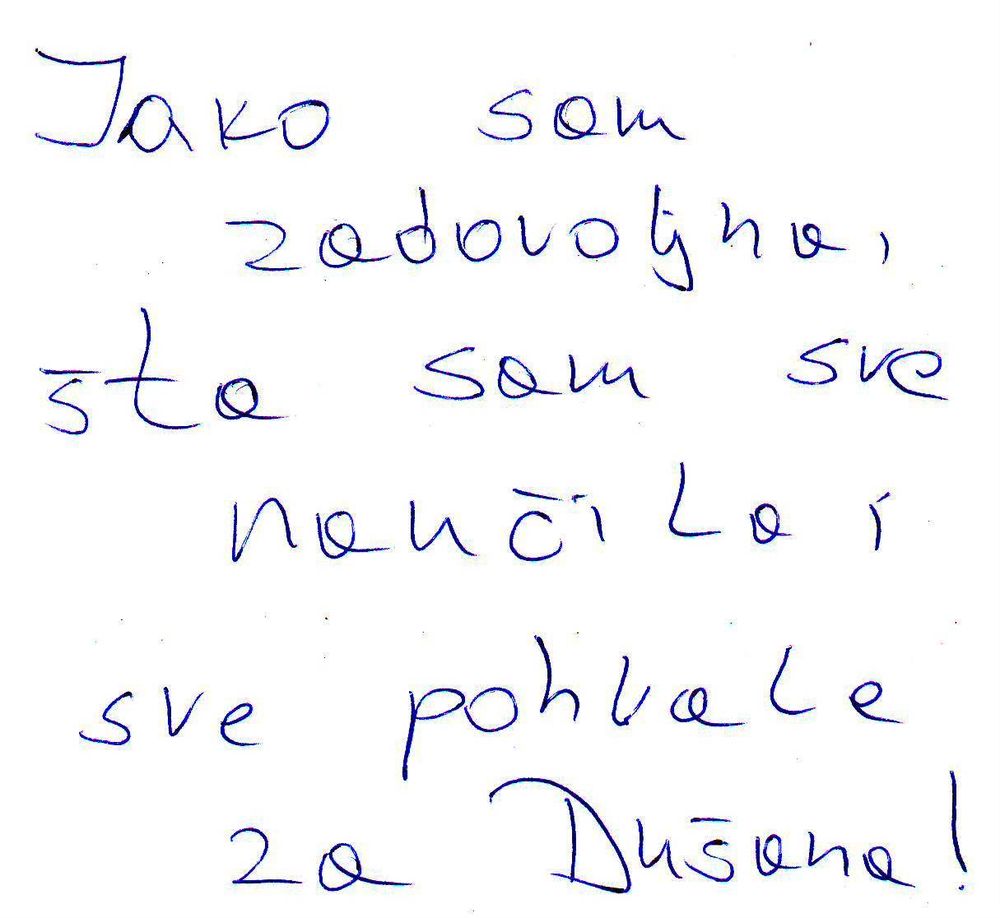 Jako sam
zadovoljna,
šta sam sve
naučila i
sve pohvale
za Dušana!